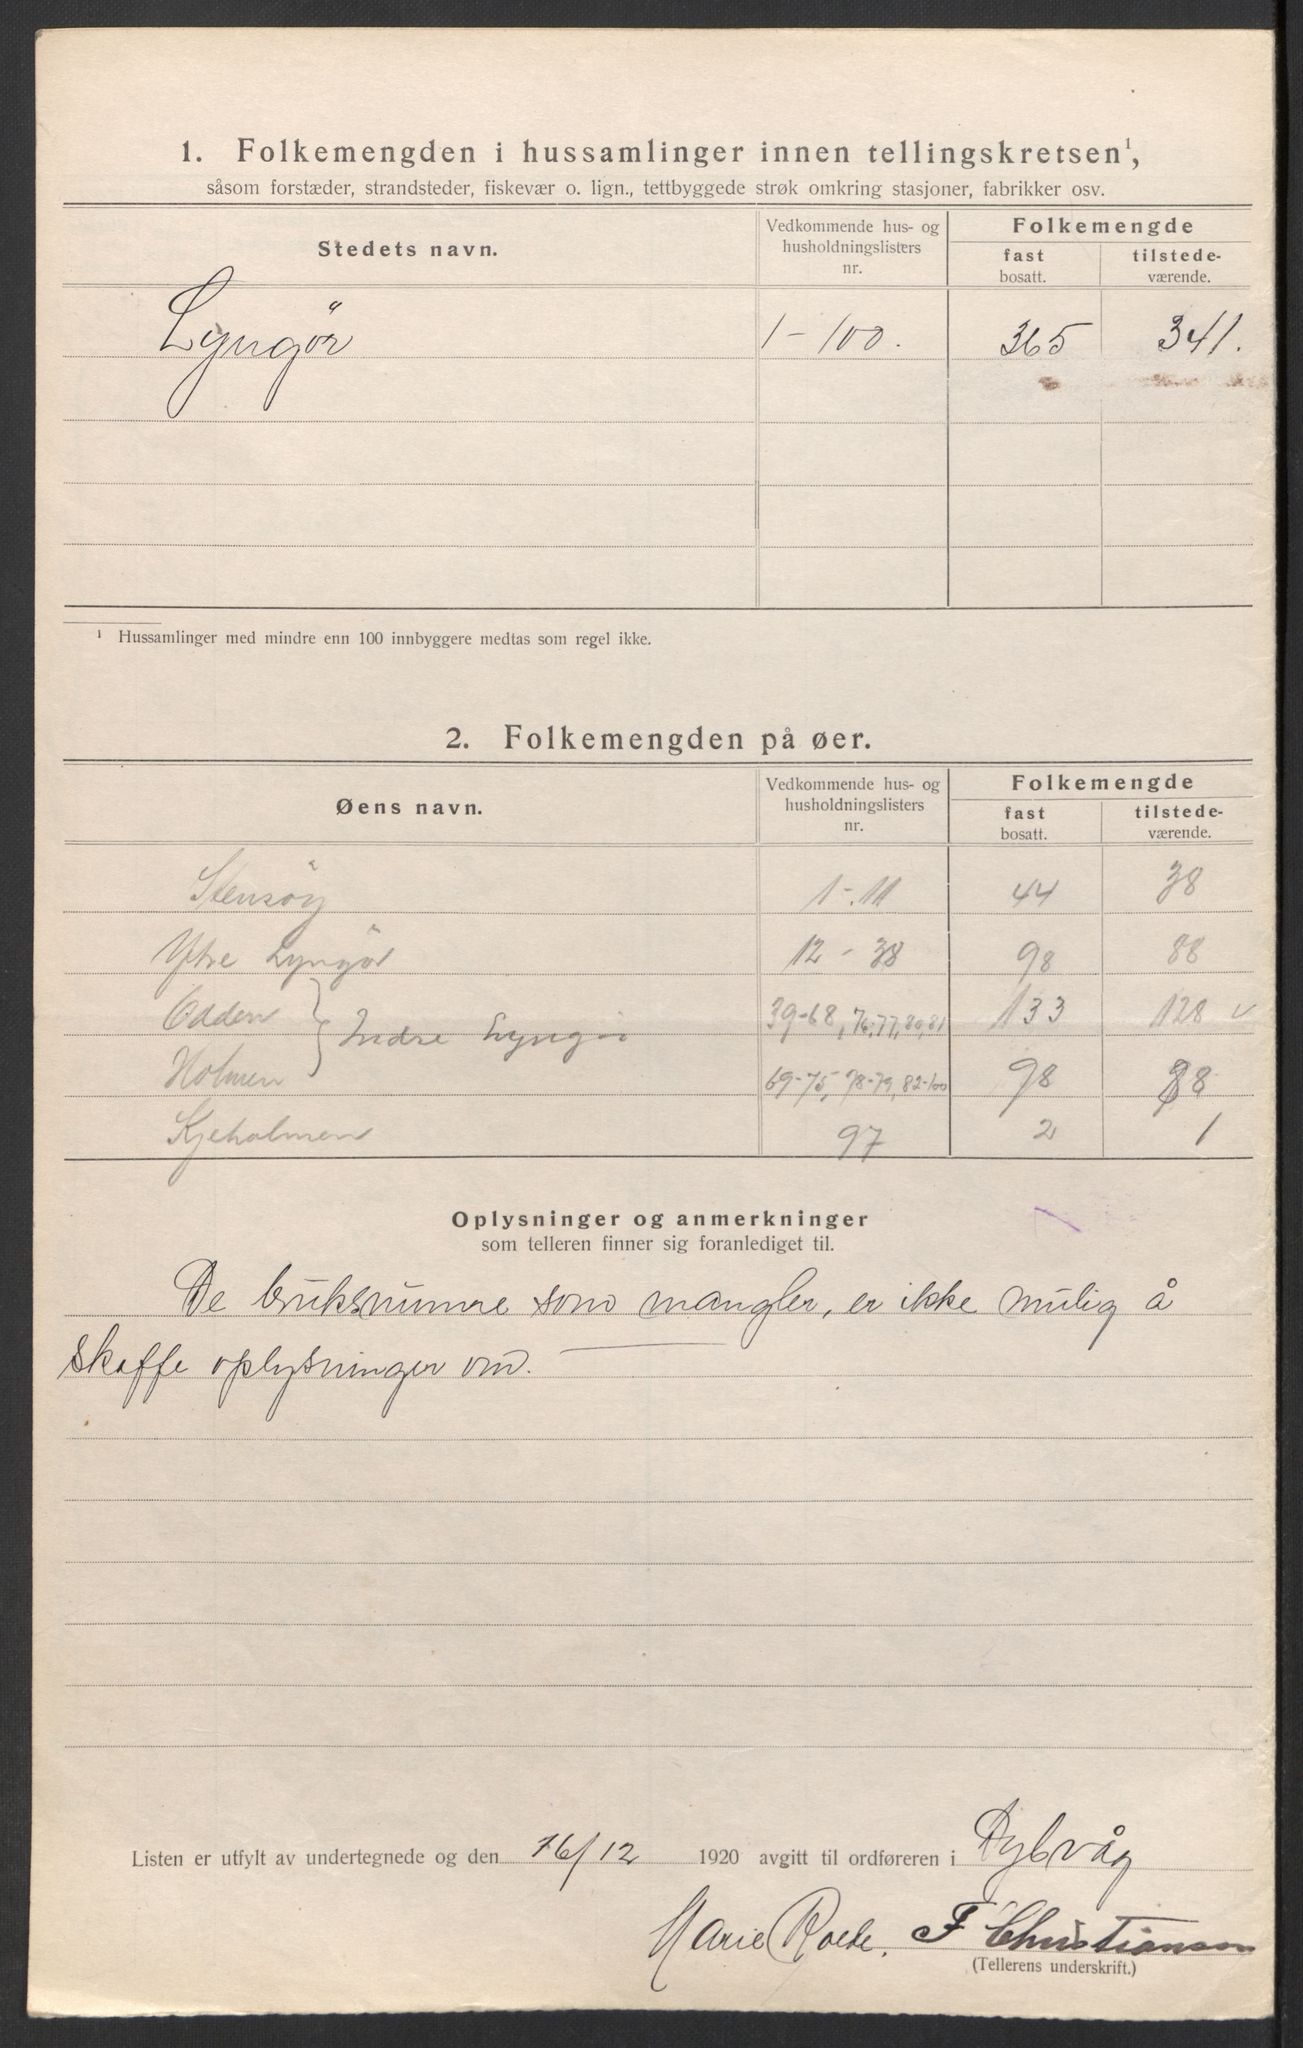 1. Folkemengden i hussamlinger innen tellingskretsen¹,
såsom forstæder, strandsteder, fiskevær o. lign., tettbyggede strøk omkring stasjoner, fabrikker osv.
Stedets navn. Vedkommende hus- og husholdningslisters nr. Folkemengde
fast bosatt. tilstede-værende.
Lyngör 1-100. 365 341.
¹ Hussamlinger med mindre enn 100 innbyggere medtas som regel ikke.
2. Folkemengden på øer.
Øens navn. Vedkommende hus- og husholdningslisters nr. Folkemengde
fast bosatt. tilstede-værende.
Stensöy 1-11 44 38
Ytre Lyngör 12-38 98 88
Odden } Indre Lyngör 39-68, 76, 77, 80, 81 133 128 v
Holmen 69-75, 78-79, 82-100 98 88
Kjeholmen 97 2 1
Oplysninger og anmerkninger
som telleren finner sig foranlediget til.
De bruksnumre som mangler, er ikke mulig å
skaffe oplysninger om.
Listen er utfylt av undertegnede og den 16/12 1920 avgitt til ordføreren i Dybvåg
Marie Roede. F Christiansen
(Tellerens underskrift.)